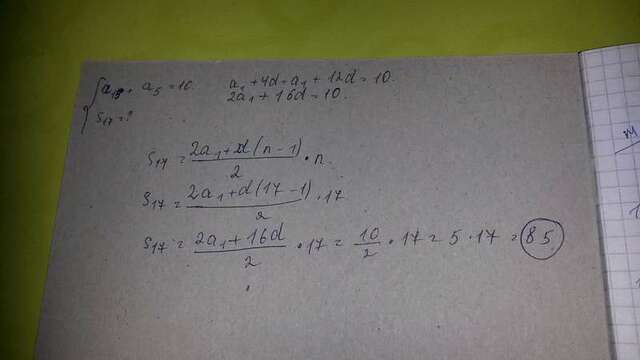 { a₁₃, a₅ = 10. a₁ + 4d = a₁ + 12d = 10.
S₁₇ = ? 2a₁ + 16d = 10.
S₁₇ = (2a₁ + d(n - 1))/2 · n.
S₁₇ = (2a₁ + d(17 - 1))/2 · 17
S₁₇ = (2a₁ + 16d)/2 · 17 = 10/2 · 17 = 5 · 17 = 85